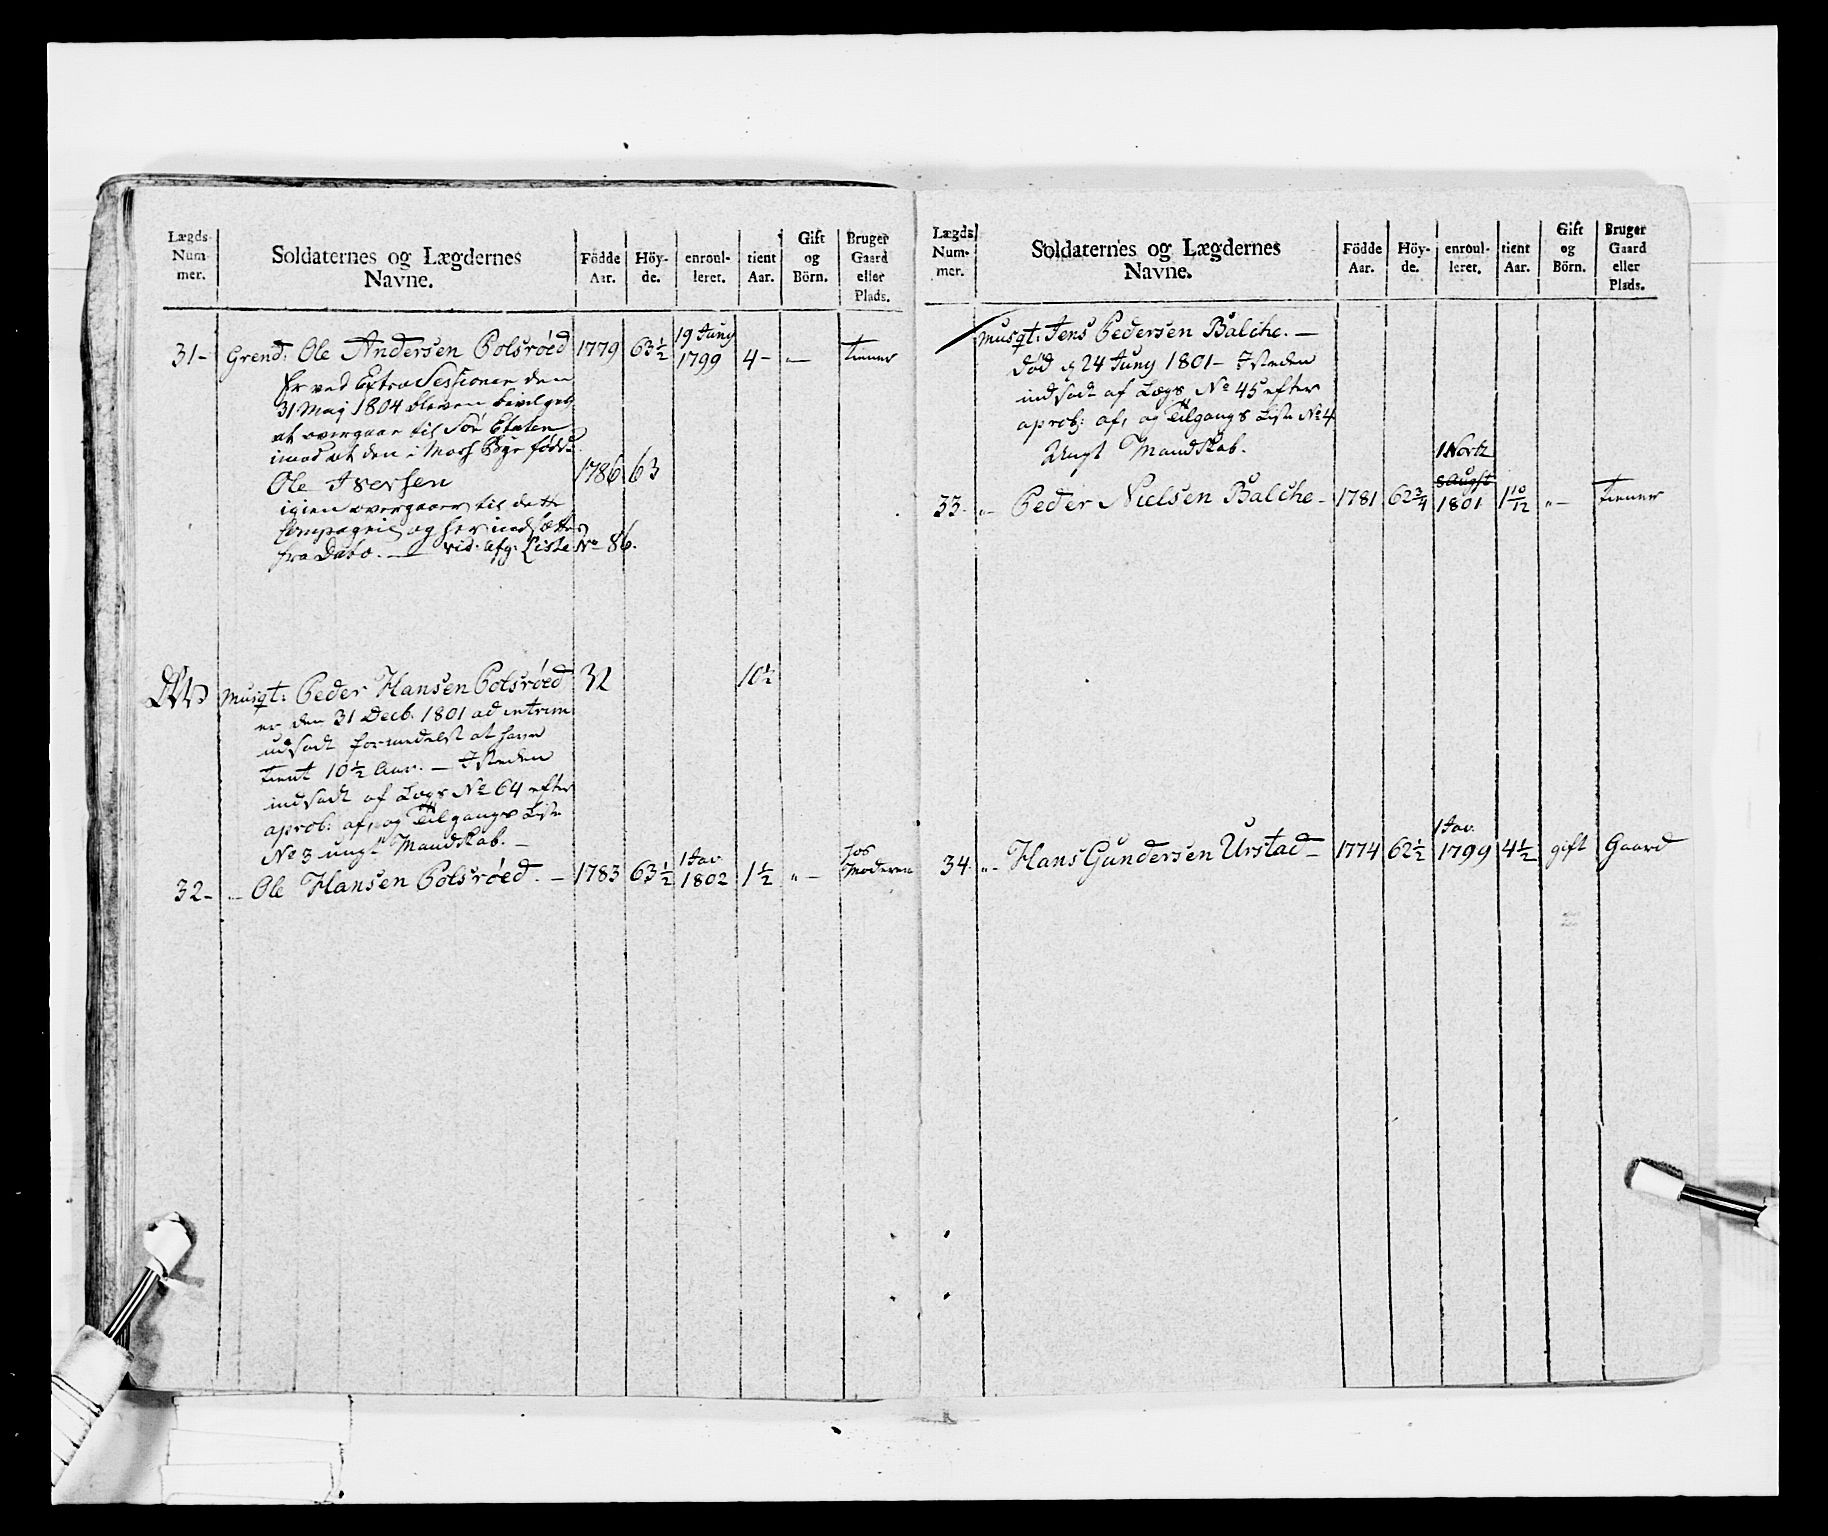 Lægds Num- mer. | Soldaternes og Lægdernes Navne. | Födde Aar. | Höy- de. | enroul- leret. | tient Aar. | Gift og Börn. | Bruger Gaard eller Plads.
19 Juny
31- Grend: Ole Andersen Bolsrøed 1779 63½ 1799 4- "- tiener
Er ved Extra Sessionen den
31 Maj 1804 bleven bevilget
at overgaae til Söe Etaten
imod at den i Moss Bÿe födde
Ole Iversen 1786 63
igien overgaaer til dette
Compagnie og her indsættes
fra Dato. — vid: Afg: Liste No 86.
Musqt: Peder Hansen Bolsrøed 32 10½
er den 31 Decb. 1801 ad intrim
udsadt formedelst at have
tient 10½ Aar. — I steden
indsadt af Lægs No 64 efter
aprob: af, og Tilgangs Liste
No 3 ungt Mandskab. —
1 Jav. hos
32- "- Ole Hansen Bolsrøed. — 1783 63½ 1802 1½ "- Moderen
Lægds Num- mer. | Soldaternes og Lægdernes Navne. | Födde Aar. | Höy- de. | enroul- leret. | tient Aar. | Gift og Börn. | Bruger Gaard eller Plads.
Musqt: Jens Pedersen Balche. —
död d 24 Juny 1801 — I steden
indsadt af Lægs No 45 efter
aprob: af, og Tilgangs Liste No 4
Ungt Mandskab.
8 Augst
33- "- Peder Nielsen Balche - 1781 62¾ 1801 1 10/12 "- tiener
1 Jav.
34. "- Hans Gundersen Urstad - 1774 62½ 1799 4½ gift Gaard